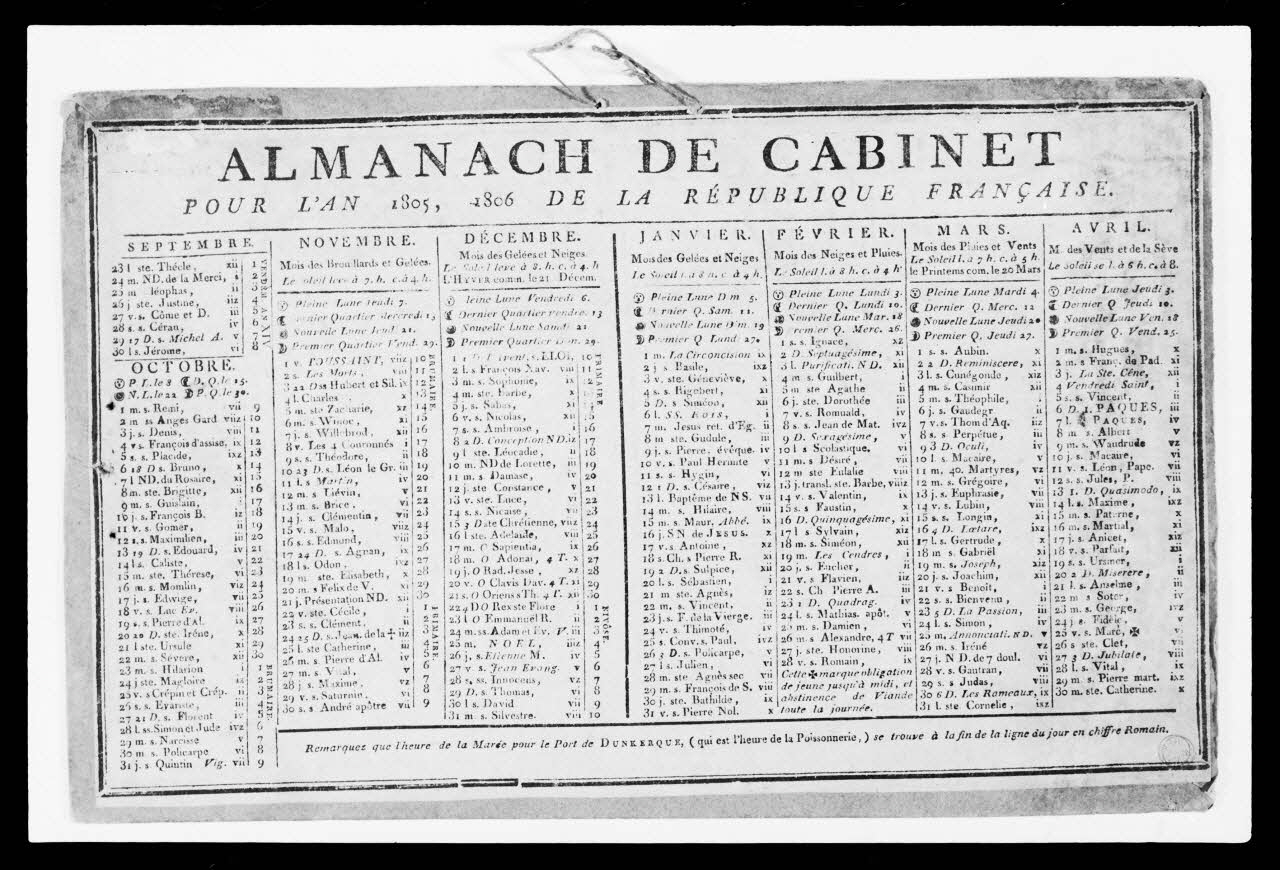 ALMANACH DE CABINET
POUR L'AN 1805, 1806 DE LA RÉPUBLIQUE FRANÇAISE.
SEPTEMBRE.
23 l ste. Thécle, xii 1
24 m. ND. de la Merci, i 2
25 m léophas, ii 3
26 j ste. Justine, iiz 4
27 v. s. Côme et D. iii 5
28 s. s. Céran, iv 6
29 17 D. s. Michel A. v 7
30 l s. Jérome, vi 8
VENDEM AN XIV
OCTOBRE.
P L. le 8 D. Q. le 15.
N. L. le 22 P. Q. le 30.
1 m s. Remi, vii 9
2 m ss Anges Gard viiz 10
3 j. s. Denis, viii 11
4 v s. François d'assise, ix 12
5 s. s. Placide, ixz 13
6 18 D s. Bruno, x 14
7 l ND. du Rosaire, xi 15
8 m. ste. Brigitte, xii 16
9 m. s. Guislain, i 17
10 j. s. François B. iz 18
11 v. s. Gomer, ii 19
12 s. s. Maximilien, iii 20
13 19 D. s. Edouard, iv 21
14 l s. Caliste, v 22
15 m. ste. Thérése, vi 23
16 m. s. Momlin, viz 24
17 j. s. Edwige, vii 25
18 v. s. Luc Ev. viii 26
19 s. s. Pierre d'Al. ix 27
20 20 D ste. Iréne, x 28
21 l ste. Ursule xi 29
22 m. s. Sévere, xii 30
23 m. s. Hilarion i 1
24 j ste. Magloire iz 2
25 v s. Crépin et Crép. ii 3
26 s. s. Evariste, iii 4
27 21 D. s. Florent iv 5
28 l. ss. Simon et Jude ivz 6
29 m. s. Narcisse v 7
30 m s. Policarpe vi 8
31 j. s Quintin Vig. vii 9
BRUMAIRE.
NOVEMBRE.
Mois des Brouillards et Gelées.
Le soleil leve à 7. h. c. à 4. h.
Pleine Lune Jeudi 7.
Dernier Quartier Mercredi 13
Nouvelle Lune Jeud. 21.
Premier Quartier Vend. 29.
1 v. TOUSSAINT, viiz 10
2 s. Les Morts, viii 11
3 22 D ss Hubert et Sil. ix 12
4 l. Charles x 13
5 m. ste Zacharie, xz 14
6 m. s. Winoc, xi 15
7 j. s. Willebrod, xii 16
8 v. Les 4 Couronnés i 17
9 s. s. Théodore, ii 18
10 23 D. s. Léon le Gr. iii 19
11 l. s Martin, iv 20
12 m s Liévin, v 21
13 m. s. Brice, vi 22
14 j. s. Clémentin, vii 23
15 v. s. Malo, viiz 24
16 s. s. Edmund, viii 25
17 24 D. s. Agnan, ix 26
18 l s. Odon, ixz 27
19 m ste. Elisabeth, x 28
20 m. s Felix de V. xi 29
21 j. Présentation ND. xii 30
22 v. ste. Cécile, i 1
23 s. s. Clément, ii 2
24 25 D. s. Jean. de la ✝ iiz 3
25 l. ste Catherine, iii 4
26 m. s. Pierre d'Al. iv 5
27 m. s. Vital, v 6
28 j. s. Maxime, vz 7
29 v. s. Saturnin, vi 8
30 s. s André apôtre vii 9
BRUMAIRE.
FRIMAIRE.
DÉCEMBRE.
Mois des Gelées et Neiges
Le Soleil leve à 8. h. c. à 4. h
L'HYVER com m. le 21 Décem.
Pleine Lune Vendredi 6.
Dernier Quartier Vendre. 13
Nouvelle Lune Samdi 21
Premier Quartier Dim. 29.
1 D. l'Avent, s. ELOI, ix 10
2 l. s François Xav. viii 11
3 m. s. Sophonie, ix 12
4 m. ste Barbe, x 13
5 j. s. Sabas, xi 14
6 v. s. Nicolas, xii 15
7 s. s. Ambroise, i 16
8 2 D. Conception ND. iz 17
9 l ste. Léocadie, ii 18
10 m. ND de Lorette, iii 19
11 m. s. Damase, iv 20
12 j. ste Constance, v 21
13 v. ste. Luce, vi 22
14 s. s. Nicaise, vii 23
15 3 D ste Chrétienne, viiz 24
16 l ste. Adelaide, viii 25
17 m. O Sapientia, ix 26
18 m. O Adonai, 4 T. x 27
19 j. O Rad. Jesse, xz 28
20 v. O Clavis Dav. 4 T. xi 29
21 s. O Oriens s Th. 4 T. xii 30
22 4 D O Rex ste Flore i 1
23 l O Emmanuel R. ii 2
24 m. ss. Adam et Ev. V. iii 3
25 m. NOEL, iiz 4
26 j. s. Etienne M. iv 5
27 v. s. Jean Evang. v 6
28 s. ss, Innocens, vz 7
29 D. s. Thomas, vi 8
30 l s. David vii 9
31 m. s. Silvestre. viii 10
FRIMAIRE
NIVÔSE
JANVIER.
Mois des Gelées et Neiges
Le Soleil l. à 8 h. c. à 4 h.
Pleine Lune Dim 5.
Dernier Q. Sam. 11.
Nouvelle Lune Dim. 19
Premier Q Lund 27.
1 m. La Circoncision ix
2 j s Basile, ixz
3 v. ste. Géneviéve, x
4 s. s. Rigebert, xi
5 D. s. Siméon xii
6 l. SS. Rois, i
7 m. Jesus ret. d'Eg. ii
8 m ste. Gudule, iii
9 j. s. Pierre. évêque. iv
10 v. s. Paul Hermite v
11 s. s. Hygin, vi
12 1 D. s. Césaire, viz
13 l. Baptême de NS. vii
14 m. s. Hilaire, viii
15 m. s. Maur, Abbé. ix
16 j. SN de JESUS. x
17 v. s. Antoine, xz
18 s. Ch s Pierre R. xi
19 2 D. s. Sulpice, xii
20 l. s. Sébastien, i
21 m ste. Agnès, iz
22 m. s. Vincent, ii
23 j. s. F. de la Vierge. iii
24 v. s. Thimoté, iv
25 s. Conv. s. Paul, ivz
26 3 D. s. Policarpe, v
27 l s. Julien, vi
28 m. ste Agnès sec vii
29 m. s. François de S. viii
30 j. ste. Bathilde, ix
31 v. s. Pierre Nol. x
FÉVRIER.
Mois des Neiges et Pluies.
Le Soleil l. à 8 h. c. à 4 h
Pleine Lune Lundi 3.
Dernier Q. Lundi 10.
Nouvelle Lune Mar. 18
Premier Q. Merc. 26.
1 s s. Ignace, xz
2 D. Septuagésime, xi
3 l. Purificati. N D. xii
4 m s. Guilbert, i
5 m ste Agathe ii
6 j. ste. Dorothée iii
7 v. s. Romuald, iv
8 s. s. Jean de Mat. ivz
9 D. Sexagésime, v
10 l s Scolastique. vi
11 m s. Désiré, vii
12 m ste Eulalie viii
13 j. transl. ste. Barbe, viiiz
14 v. s. Valentin, ix
15 s. s Faustin, x
16 D. Quinquagésime, xi
17 l s Sylvain, xii
18 m. s. Siméon, xii
19 m. Les Cendres, i
20 j. s. Eucher, ii
21 v. s Flavien, iiz
22 s. Ch Pierre A. iii
23 1 D. Quadrag. iv
24 l. s. Mathias. apôt. v
25 m. s. Damien, vi
26 m s. Alexandre, 4 T vii
27 j. ste. Honorine, viii
28 v. s. Romain, ix
Cette ✠ marque obligation
de jeune jusqu'à midi, et
abstinence de Viande
toute la journée.
MARS.
Mois des Pluies et Vents
Le Soleil l. à 7 h. c. à 5 h.
le Printems com. le 20 Mars
Pleine Lune Mardi 4.
Dernier Q. Merc. 12
Nouvelle Lune Jeudi 20
Premier Q. Jeudi 27.
1 s. s. Aubin. x
2 2 D. Reminiscere, xi
3 l s. Cunégonde xiz
4 m. s. Casimir xii
5 m. s. Théophile, i
6 j. s. Gaudegr. ii
7 v. s. Thom d'Aq. iiz
8 s s. Perpétue, iii
9 3 D. Oculi, iv
10 l s. Macaire, v
11 m. 40. Martyres, vz
12 m. s. Grégoire, vi
13 j. s. Euphrasie, vii
14 v. s. Lubin, viii
15 s. s. Longin, ix
16 4 D. Lœtare, ixz
17 l. s. Gertrude, x
18 m s. Gabriél xi
19 m. s. Joseph, xiz
20 j. s. Joachim, xii
21 v s Benoît, i
22 s. s. Bienvenu, ii
23 5 D. La Passion, iii
24 l. s. Simon, iv
25 m. Annonciati. ND. v
26 m. s. Iréné vz
27 j. N D de 7 doul. vi
28 v. s. Gautran, vii
29 s. s Judas, viii
30 6 D. Les Rameaux, ix
31 l. ste Cornelie, ixz
AVRIL.
M. des Vents et de la Sève
Le soleil se l. à 6 h. c. à 8.
Pleine Lune Jeudi 3.
Dernier Q Jeudi 10.
Nouvelle Lune Ven. 18
Premier Q. Vend. 25.
1 m. s. Hugues, x
2 m s Franç. de Pad. xi
3 j. La Ste. Cêne, xii
4 Vendredi Saint, i
5 s. s. Vincent, ii
6 D. 1. PAQUES, iii
7 l. PAQUES, iz
8 m s. Albert v
9 m. s. Waudrude vz
10 j. s. Macaire, vi
11 v. s. Léon, Pape. vii
12 s. s. Jules, P. viii
13 1. D. Quasimodo, ix
14 l. s. Maxime, ixz
15 m s. Paterne, x
16 m. s. Martial, xi
17 j. s. Anicet, xiz
18 v. s. Parfait, xii
19 s. s. Ursmer, i
20 2 D Miserere, ii
21 l. s. Anselme, iii
22 m s Soter, iv
23 m. s. George, ivz
24 j s. Fidéle, v
25 v. s. Marc, ✠ vi
26 s ste. Clet, vii
27 3 D. Jubilate, viii
28 l. s. Vital, ix
29 m. s. Pierre mart. ixz
30 m. ste. Catherine. x
Remarquez que l'heure de la Marée pour le Port de DUNKERQUE, ( qui est l'heure de la Poissonnerie, ) se trouve à la fin de la ligne du jour en chiffre Romain.